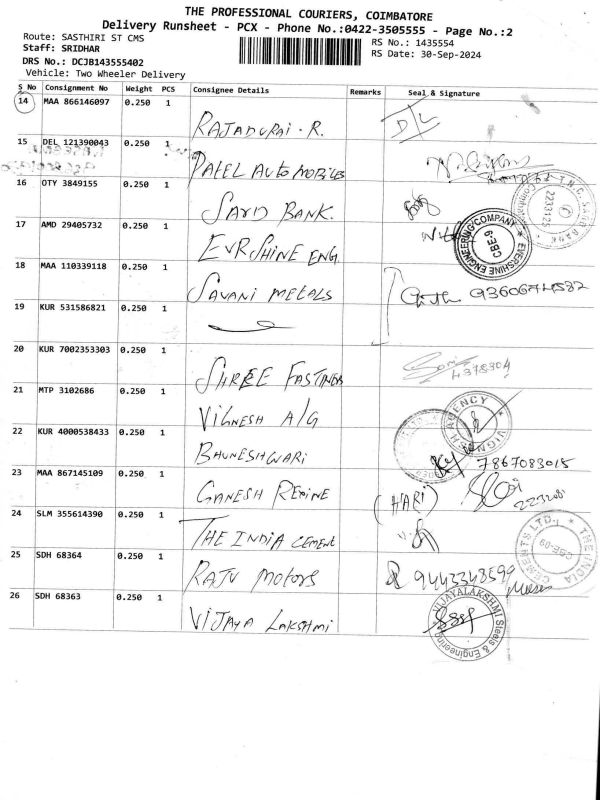 THE PROFESSIONAL COURIERS, COIMBATORE
Delivery Runsheet - PCX - Phone No.:0422-3505555 - Page No.:2
Route: SASTHIRI ST CMS
RS No.: 1435554
Staff: SRIDHAR
RS Date: 30-Sep-2024
DRS No.: DCJB143555402
Vehicle: Two Wheeler Delivery
S No Consignment No Weight PCS Consignee Details Remarks Seal & Signature
14 MAA 866146097 0.250 1 RAJADURAI . R. D/L
15 DEL 121390043 0.250 1 PATEL AUTO MOBILES
16 OTY 3849155 0.250 1 SAYD BANK.
T.N.C. 223125
17 AMD 29405732 0.250 1 EVRSHINE ENG.
EVERSHINE ENGINEERING COMPANY CBE9
18 MAA 110339118 0.250 1 SAVANI METALS
19 KUR 531586821 0.250 1
20 KUR 7002353303 0.250 1 SHREE FASTINERS 4378304
21 MTP 3102686 0.250 1 VIGNESH A/G
VIGNESH AGENCY
22 KUR 4000538433 0.250 1 BHUNESHWARI 7867083015
23 MAA 867145109 0.250 1 GANESH REMINE (HARI)
24 SLM 355614390 0.250 1 THE INDIA CEMENT
THE INDIA CEMENTS LTD., CBE-09
25 SDH 68364 0.250 1 RAJU MOTORS 9443348599
26 SDH 68363 0.250 1 VIJAYA LAKSHMI
VIJAYALAKSHMI Steels & Engineering